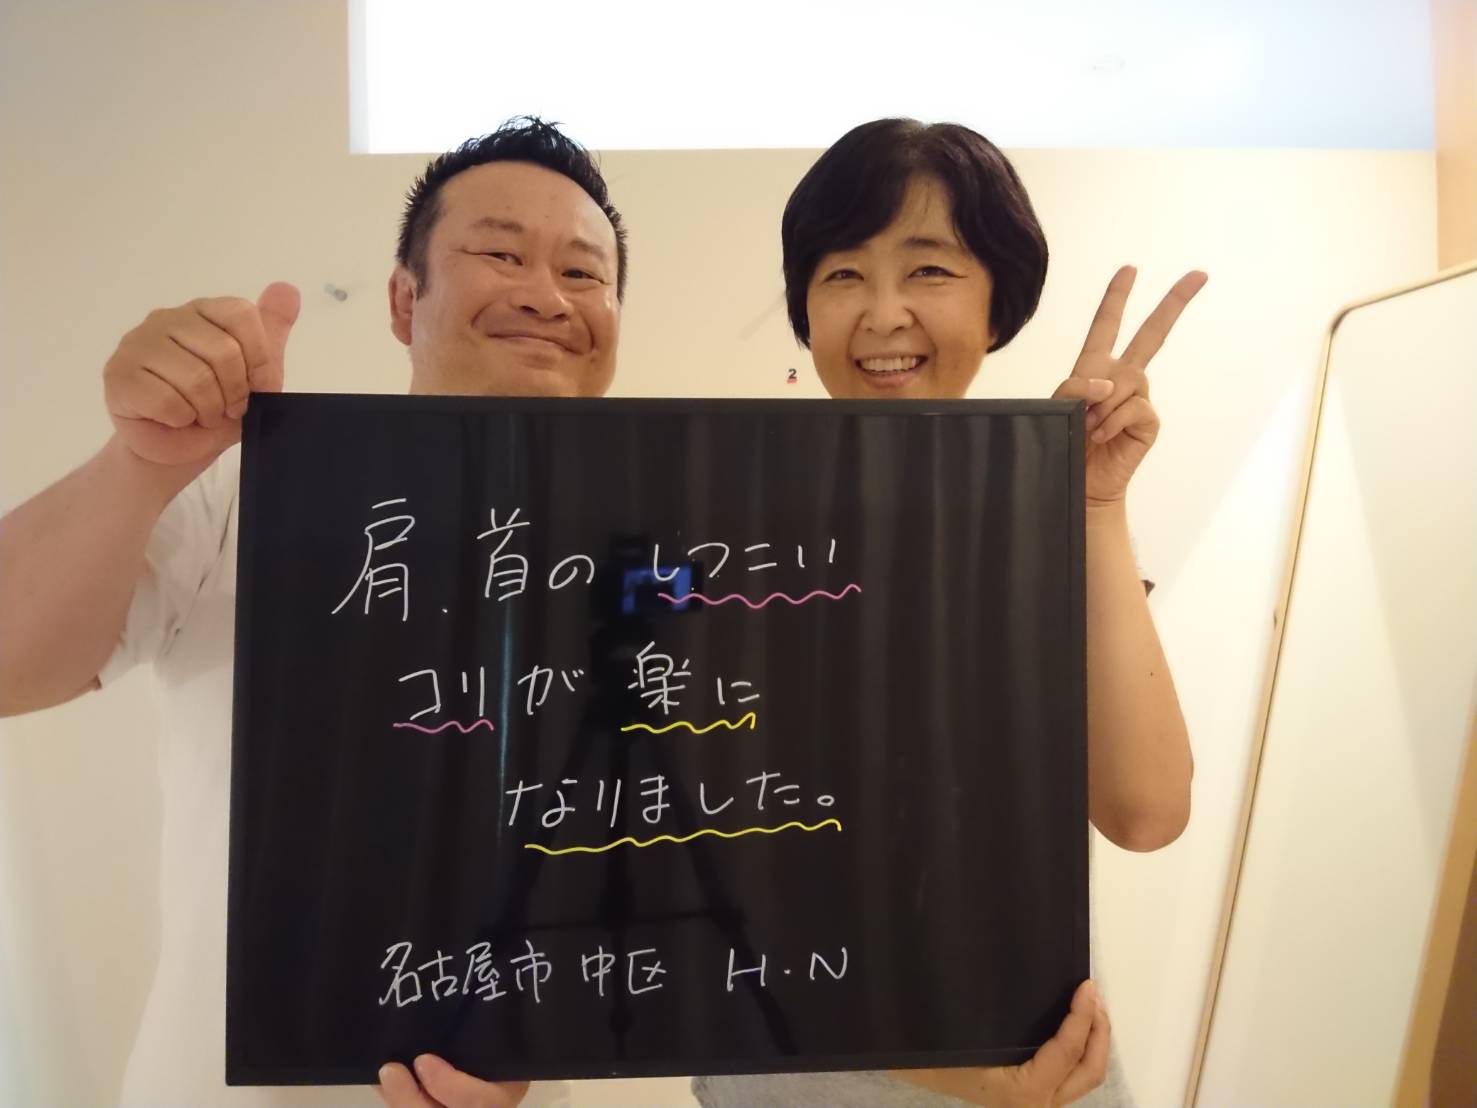 2
肩、首のしつこい
コリが楽に
なりました。
名古屋市中区 H.N